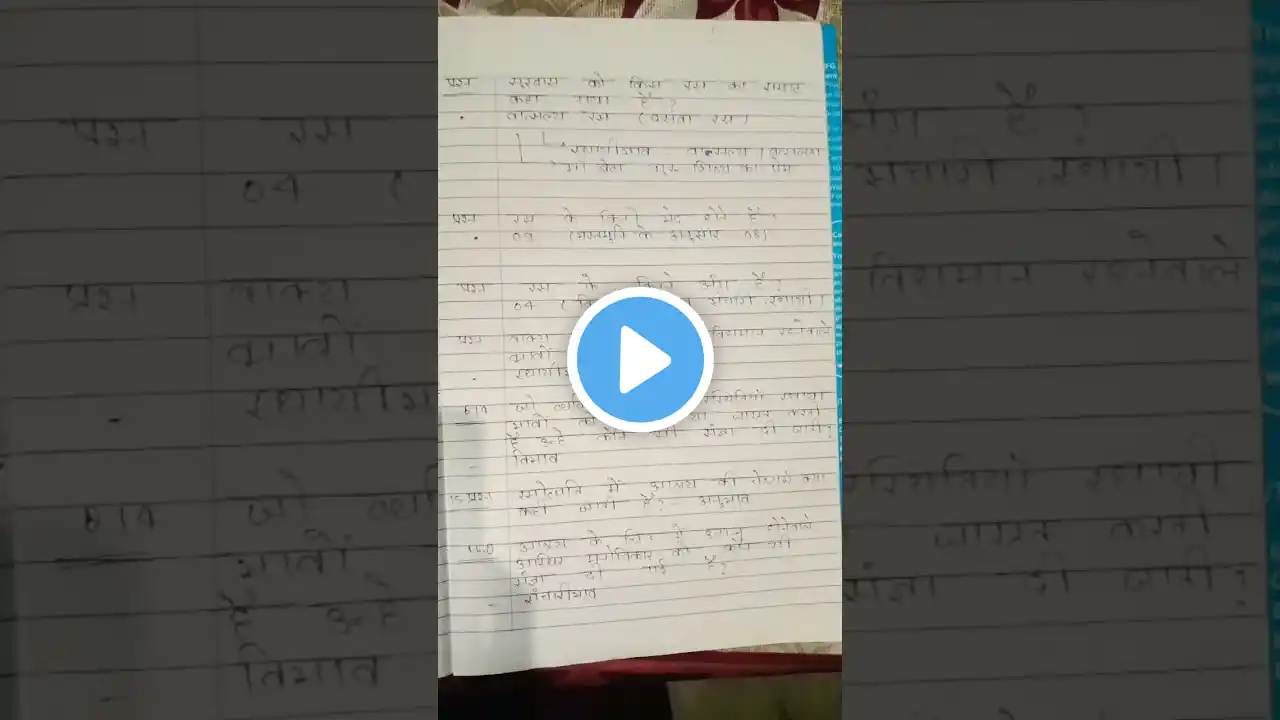 प्रश्न सूरदास को किस रस का सम्राट
कहा गया है?
वात्सल्य रस (वसंता रस)
स्थायीभाव - वात्सल्य / वत्सलता
माँ बेटा गुरु शिष्य का प्रेम
प्रश्न रस के कितने भेद होते हैं?
09 (भरतमुनि के अनुसार 08)
प्रश्न रस के कितने अंग हैं?
04 ( संचारी, स्थायी)
प्रश्न विद्यमान रहनेवाले
भावों
प्रश्न जो परिस्थितियां स्थायी
भावों को या जाग्रत करती
है उन्हें कौन सी संज्ञा दी जाती?
- विभाव
प्रश्न रसोत्पत्ति में आश्रय की चेष्टाएं क्या
कही जाती है? - अनुभाव
आश्रय के चित्त में उत्पन्न होनेवाले
अस्थिर मनोविकार को कौन सी
संज्ञा दी गई है?
- संचारीभाव